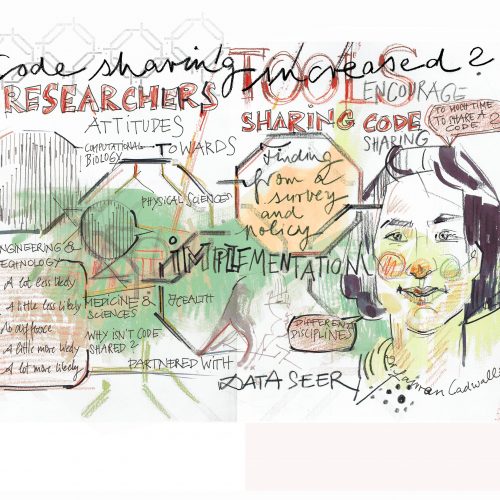 Code sharing increased?
RESEARCHERS TOOLS
ENCOURAGE
ATTITUDES
SHARING CODE
SHARING
TO MUCH TIME
TO SHARE A
CODE?
COMPUTATIONAL
BIOLOGY
TOWARDS
Finding
from a
survey
and
policy
PHYSICAL SCIENCES
IMPLEMENTATION
ENGINEERING &
TECHNOLOGY
A lot less likely
A little less likely
No difference
A little more likely
A lot more likely
MEDICINE &
SCIENCES
HEALTH
WHY ISN'T CODE
SHARED?
DIFFERENT
DISCIPLINE
PARTNERED WITH
DATA SEER